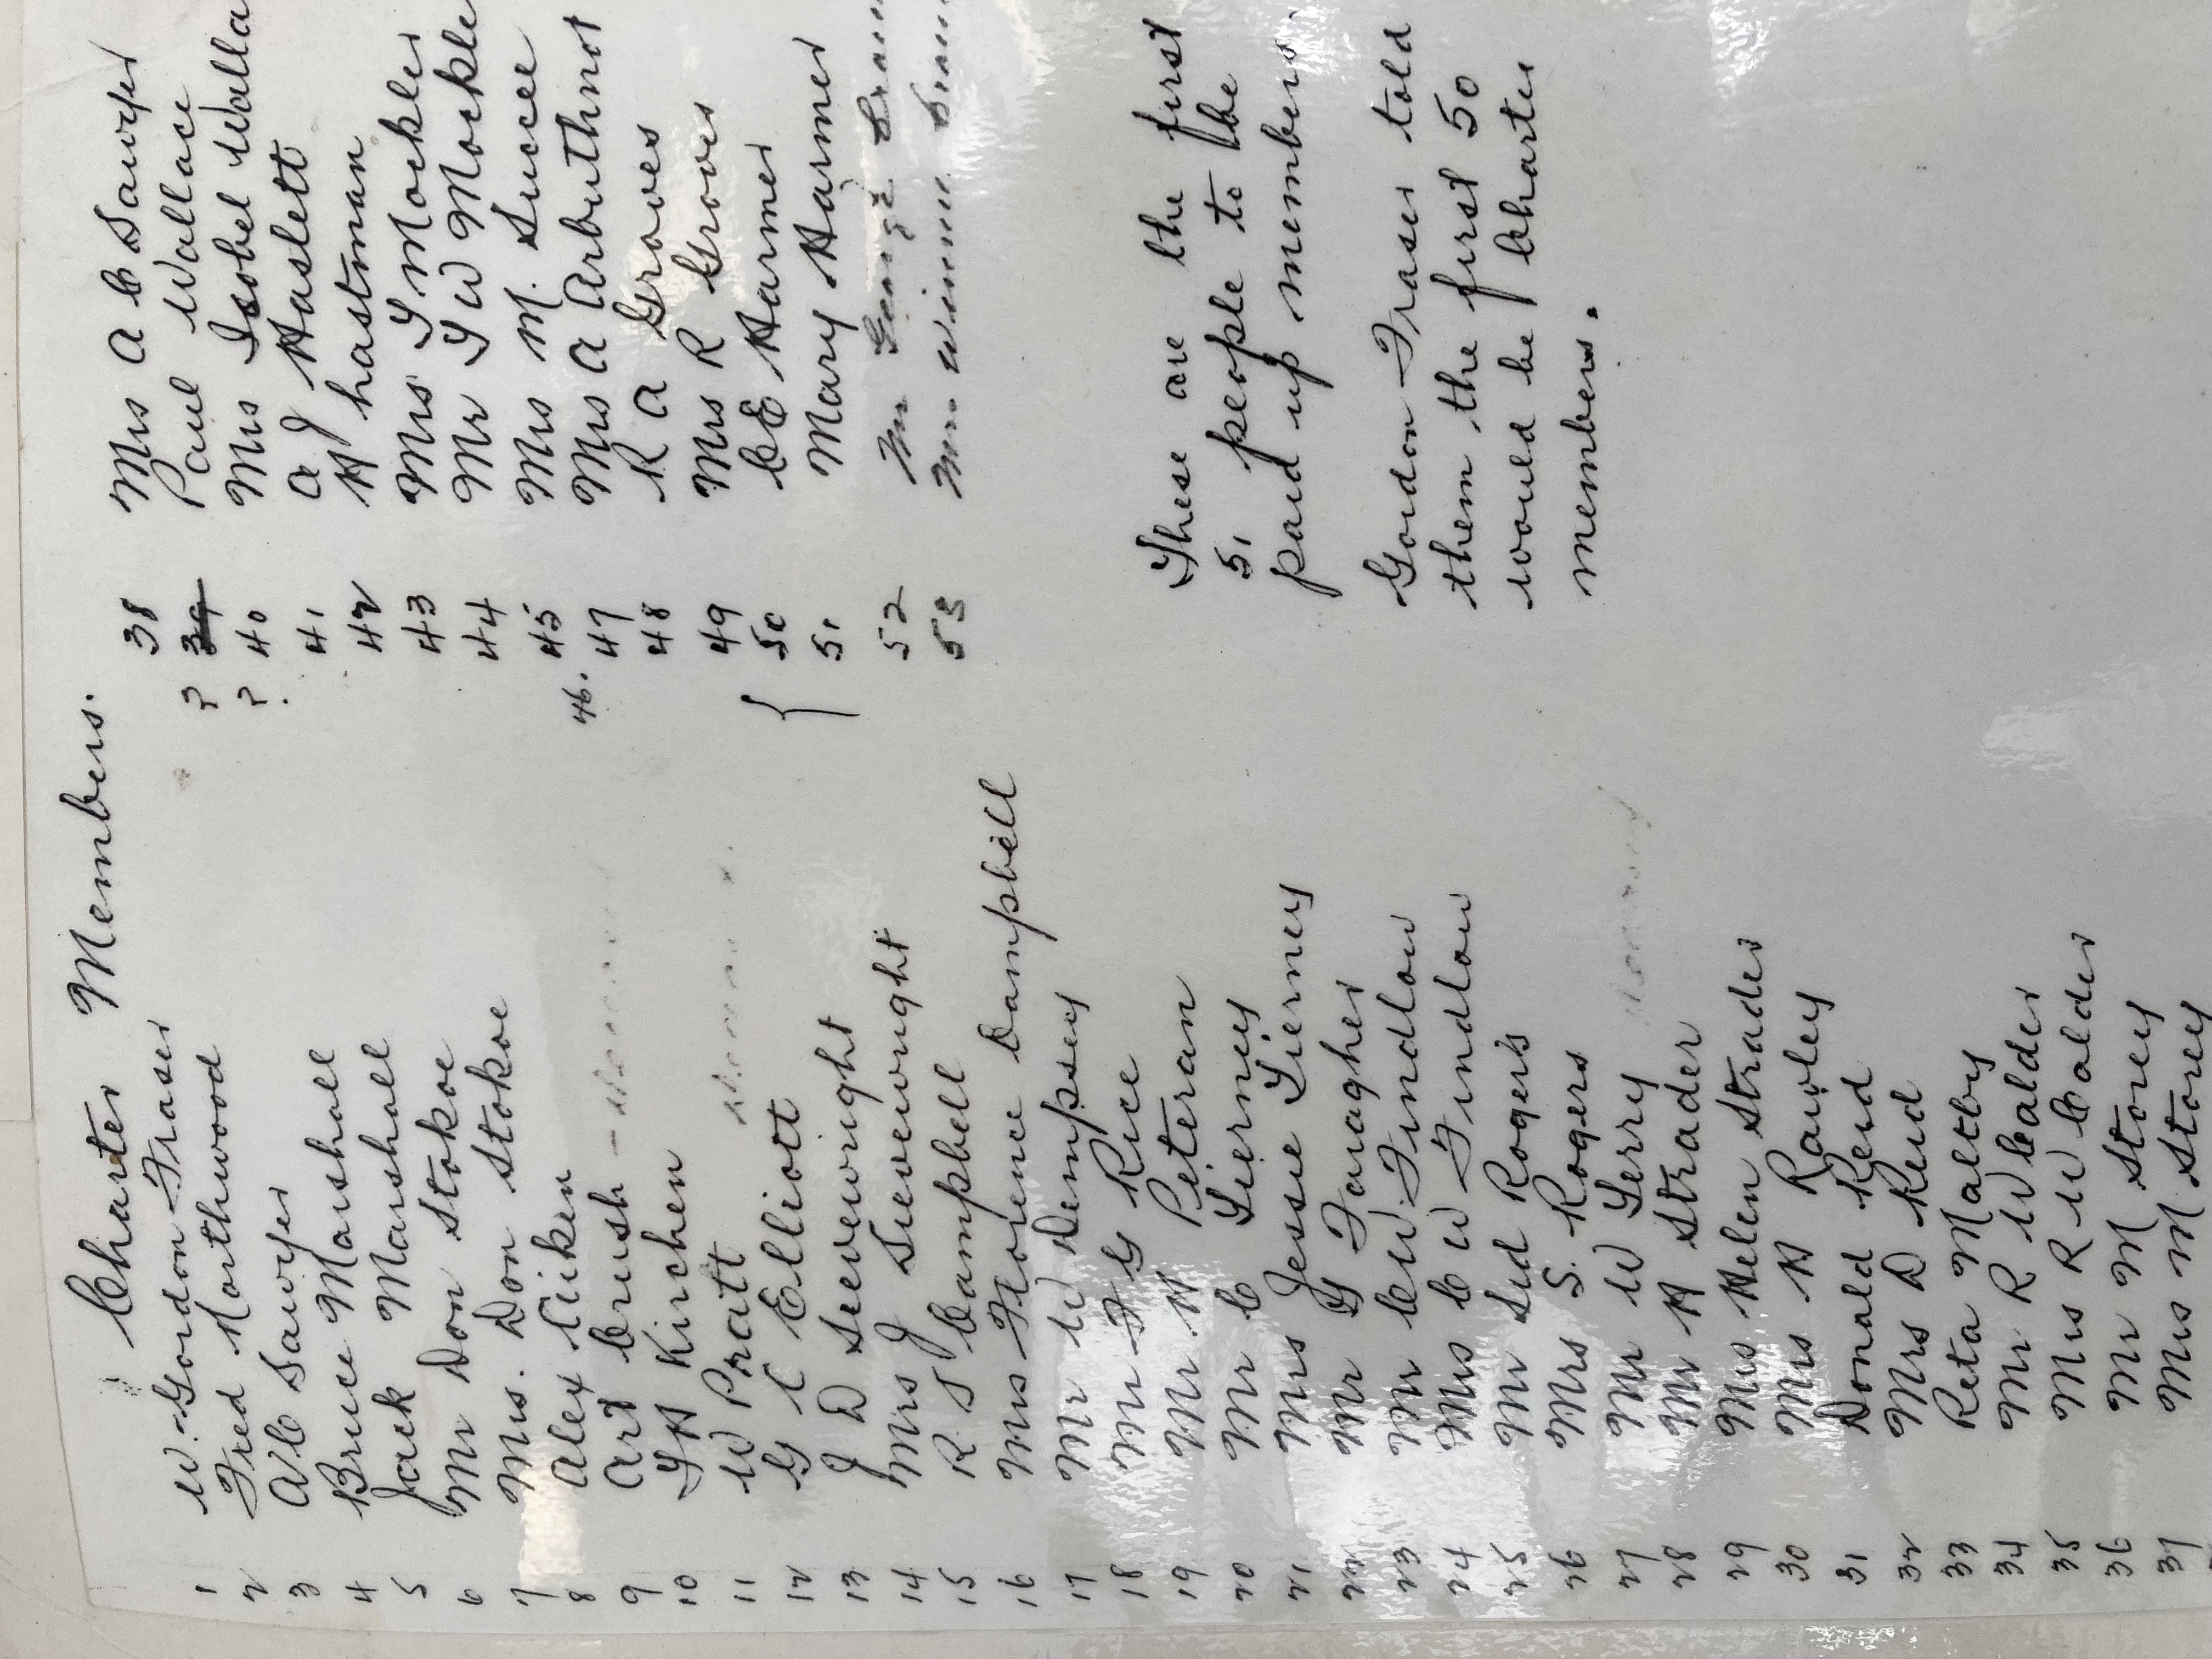 Charter Members.
1 W. Gordon Fraser
2 Fred Northwood
3 A C Sawyer
4 Bruce Marshall
5 Jack Marshall
6 Mr Don Stokoe
7 Mrs. Don Stokoe
8 Alex Aiken
9 Art Crush -
10 Kirchen
11 W Pratt
12 G C Elliott
13 J D Sievewright
14 Mrs J Sievewright
15 R. J Campbell
16 Mrs Florence Campbell
17 Mr W Dempsey
18 Mr F G Rice
19 Mr H Peteran
20 Mr C Tierney
21 Mrs Jessie Tierney
22 Mr G Faugher
23 Mr C W Findlow
24 Mrs C W Findlow
25 Mr Sid Rogers
26 Mrs S. Rogers
27 Mr W Terry
28 Mr H Strader
29 Mrs Helen Strader
30 Mrs H Rowley
31 Donald Reid
32 Mrs D Reid
33 Reta Maltby
34 Mr R W Calder
35 Mrs R W Calder
36 Mr M Storey
37 Mrs M Storey
38 Mrs A C Sawyer
? 39 Paul Wallace
? 40 Mrs Isobel Walla
41 A J Haslett
42 H hastman
43 Mrs I Mockler
44 Mr I W Mockle
46. 45 Mrs M. Succee
47 Mrs A Arbuthnot
48 R A Groves
49 Mrs R Groves
50 C E Harmer
51 Mary Harmer
52 Mr George
53 Mrs Winnie
These are the first
51 people to be
paid up members
Gordon Fraser told
them the first 50
would be Charter
members.